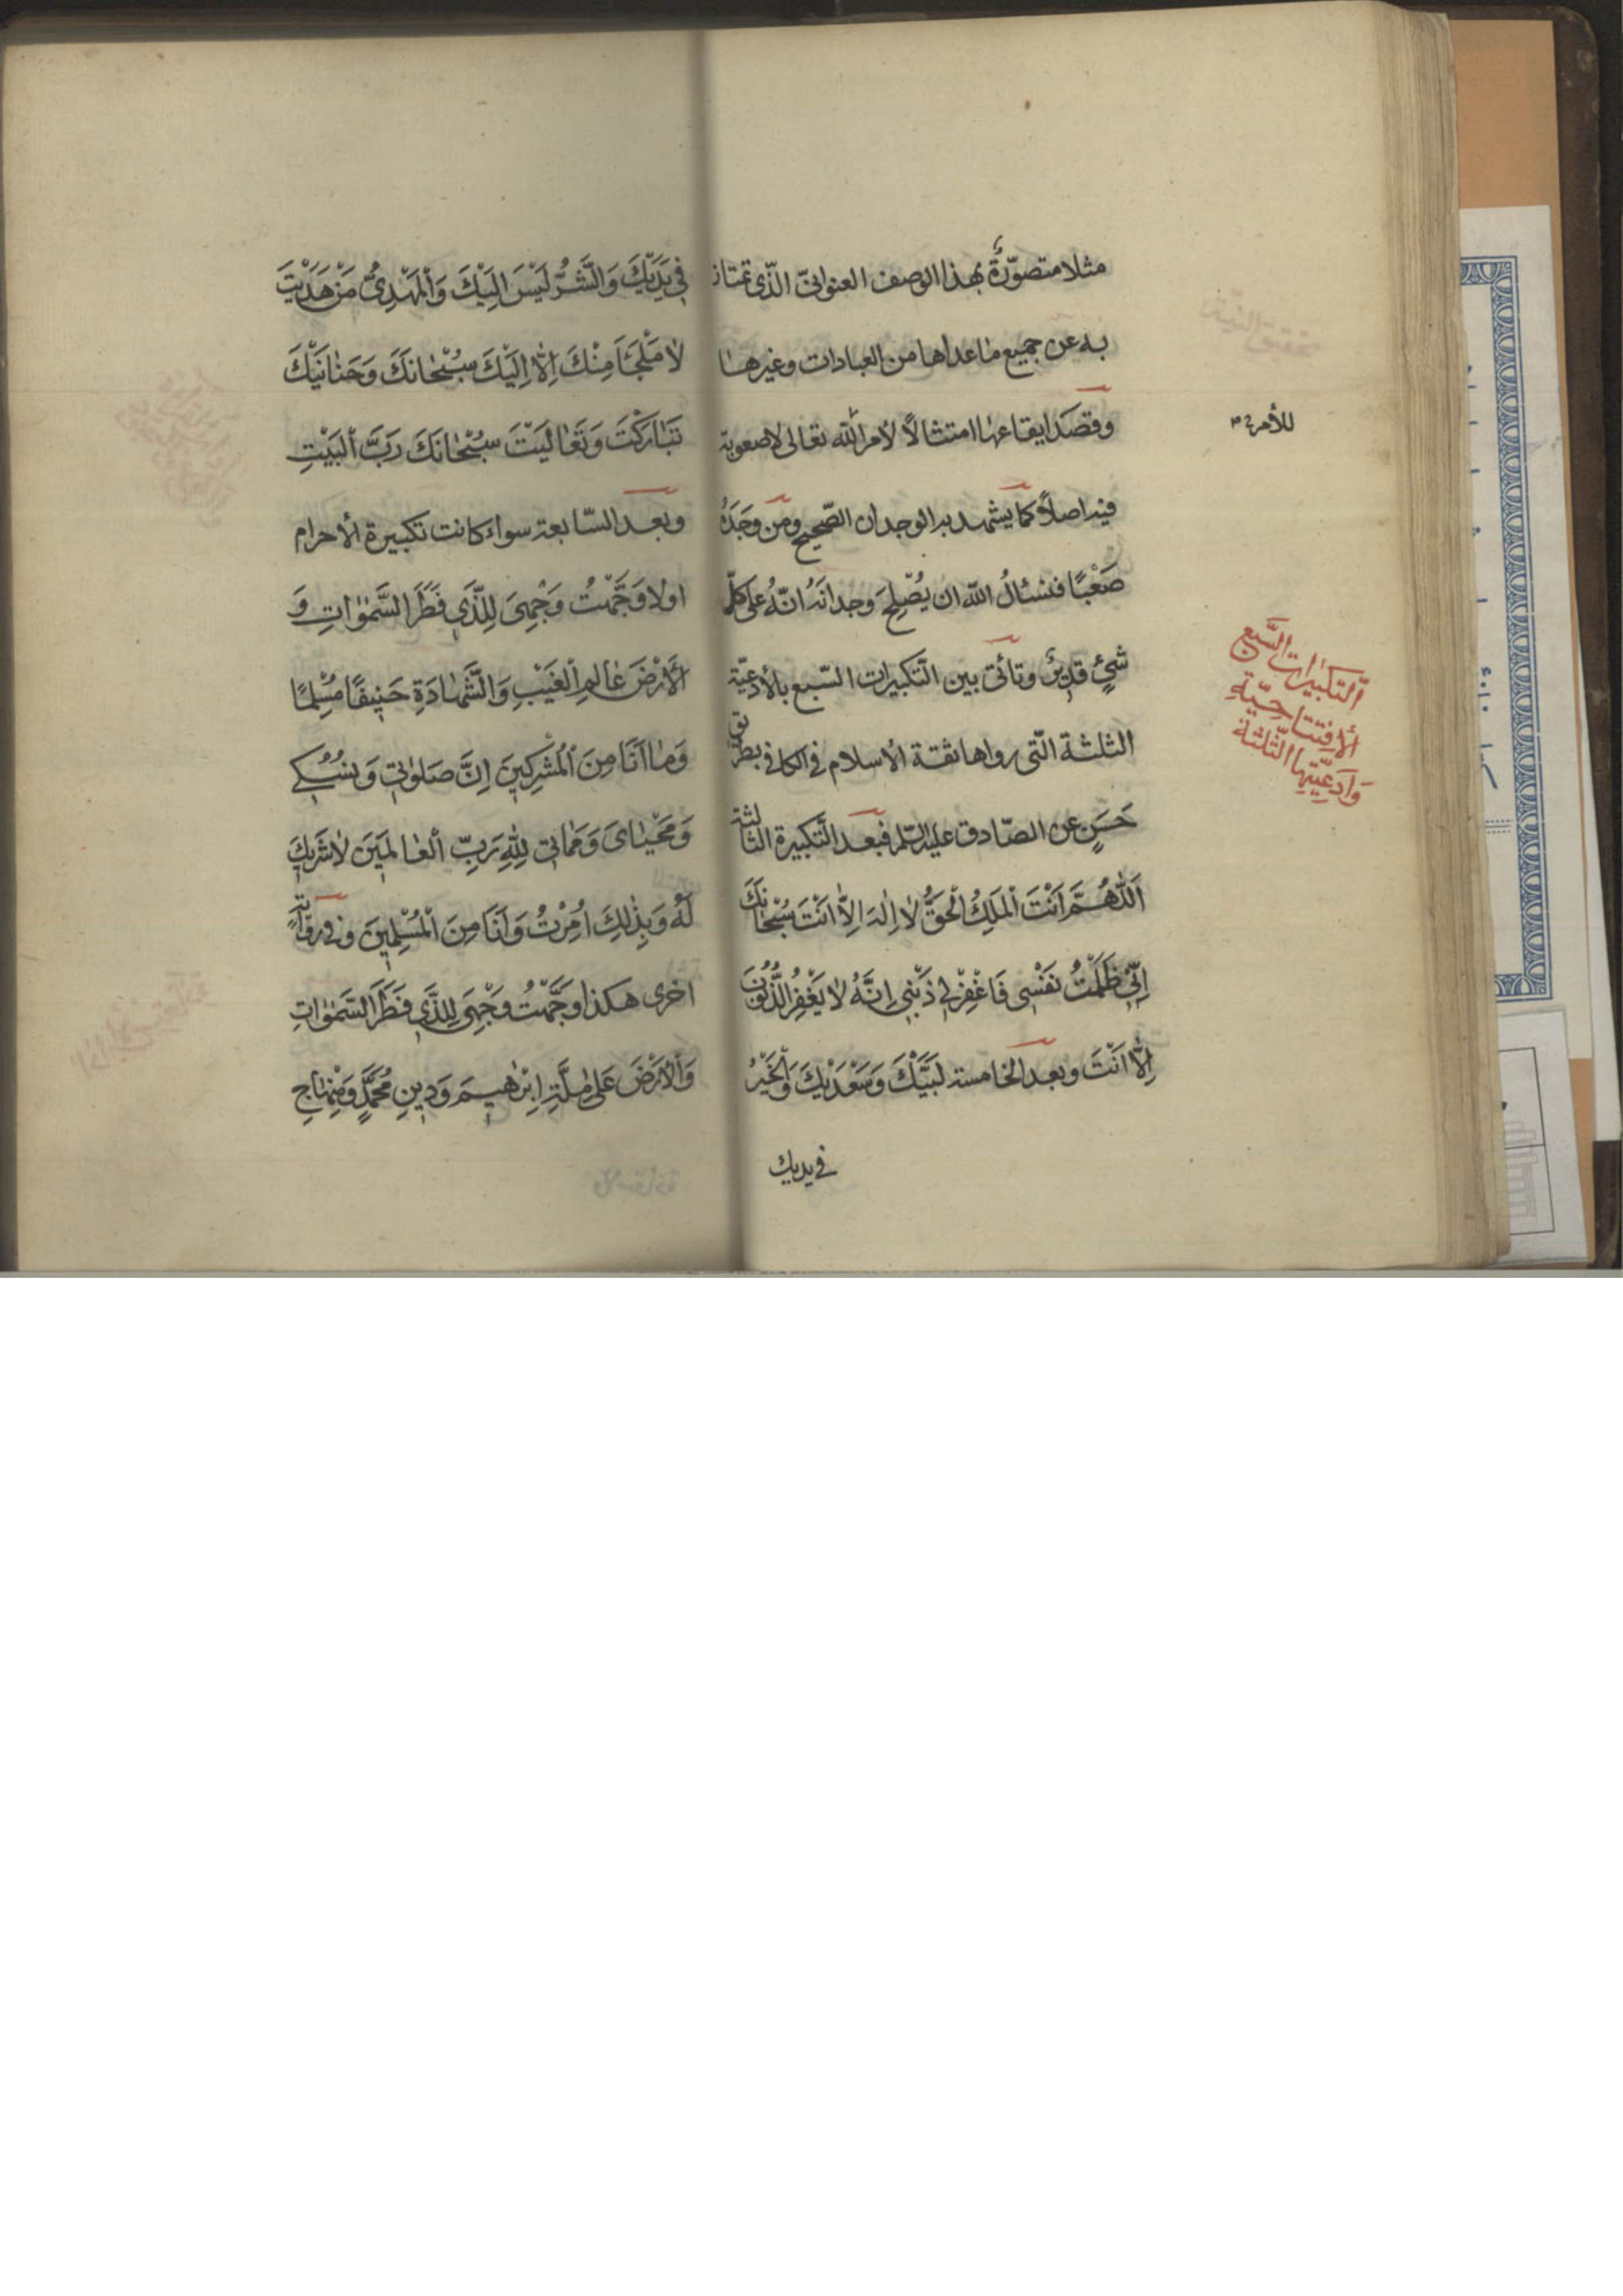 مثلا متصوّرةً بهذا الوصف العنوانیّ الّذی تمتاز
به عن جمیع ماعداها من العبادات وغیرها
وقصَدَ ایقاعها امتثالاً لأمر الله تعالی لاصعوبة
فیه اصلاً کما یشهد به الوجدان الصّحیح ومن وجَدَهُ
صَعْبًا فنسئالُ الله ان یُصْلِحَ وجدانَهُ انّهُ علی کلّ
شیٍٔ قدیرٌ وتأتی بین التّکبیرات السّبع بالأدعیّة
الثلثة الّتی رواها ثقة الأسلام فی الکافی بطریق
حَسَنٍ عن الصّادق علیه السّلم فبعد التّکبیرة الثالثة
اَللّٰهُمَّ اَنْتَ اْلمَلِكُ الْحَقُّ لاٰ اِلٰهَ اِلاّٰ اَنْتَ سُبْحٰانَكَ
اِنّی ظَلَمْتُ نَفْسٖی فَاغْفِرْلٖی ذَنْبٖی اِنَّهُ لاٰ یَغْفِرُ الذُّنُوبَ
اِلاّٰ اَنْتَ وبعد الخامسة لَبَّیْكَ وَسَعْدَیْكَ وَالْخَیْرُ
فی یدیك
للأمر
اَلتّکبیٰرات السَّبع
اْلأفِتتٰاحِیّة
وَاَدعِیَّتِها الثّلٰثَة
فٖی یَدَیْكَ وَالشَّرُّ لَیْسَ اِلَیْكَ وَاْلمَهْدِیُّ مَنْ هَدَیْتَ
لاٰ مَلْجَأَ مِنْكَ اِلاّٰ اِلَیْكَ سُبْحٰانَكَ وَحَنٰانَیْكَ
تَبٰارَکْتَ وَتَعٰالَیْتَ سُبْحٰانَكَ رَبَّ اْلبَیْتِ
وبعد السّابعة سواء کانت تکبیرة الأحرام
اولا وَجَّهْتُ وَجْهِیَ لِلَّذٖی فَطَرَ السَّمٰوٰاتِ وَ
الْأَرْضَ عٰالِمِ اْلغَیْبِ وَالشَّهٰادَةِ حَنٖیفًا مُسْلِمًا
وَمٰا اَنَا مِنَ اْلمُشْرِکٖینَ اِنَّ صَلٰوتٖی وَنُسُکٖی
وَمَحْیٰایَ وَمَمٰاتٖی لِلّٰهِ رَبِّ اْلعٰالَمٖینَ لاٰ شَرٖیكَ
لَهُ وَبِذٰلِكَ اُمِرْتُ وَاَنَا مِنَ اْلمُسْلِمٖینَ وفی روایة
اخری هکذا وَجَّهْتُ وَجْهِیَ لِلَّذٖی فَطَرَ السَّمٰوٰاتِ
وَاْلأَرْضَ عَلیٰ مِلَّةِ اِبْرٰهٖیمَ وَدٖینِ مُحَمَّدٍ وَمِنْهٰاجِ